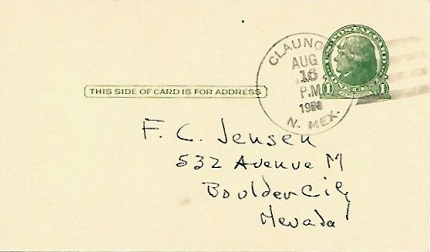 CLAUN
AUG
16
P.M
19
N. MEX.
1 1
THIS SIDE OF CARD IS FOR ADDRESS
F. C. Jensen
532 Avenue M
Boulder City
Nevada